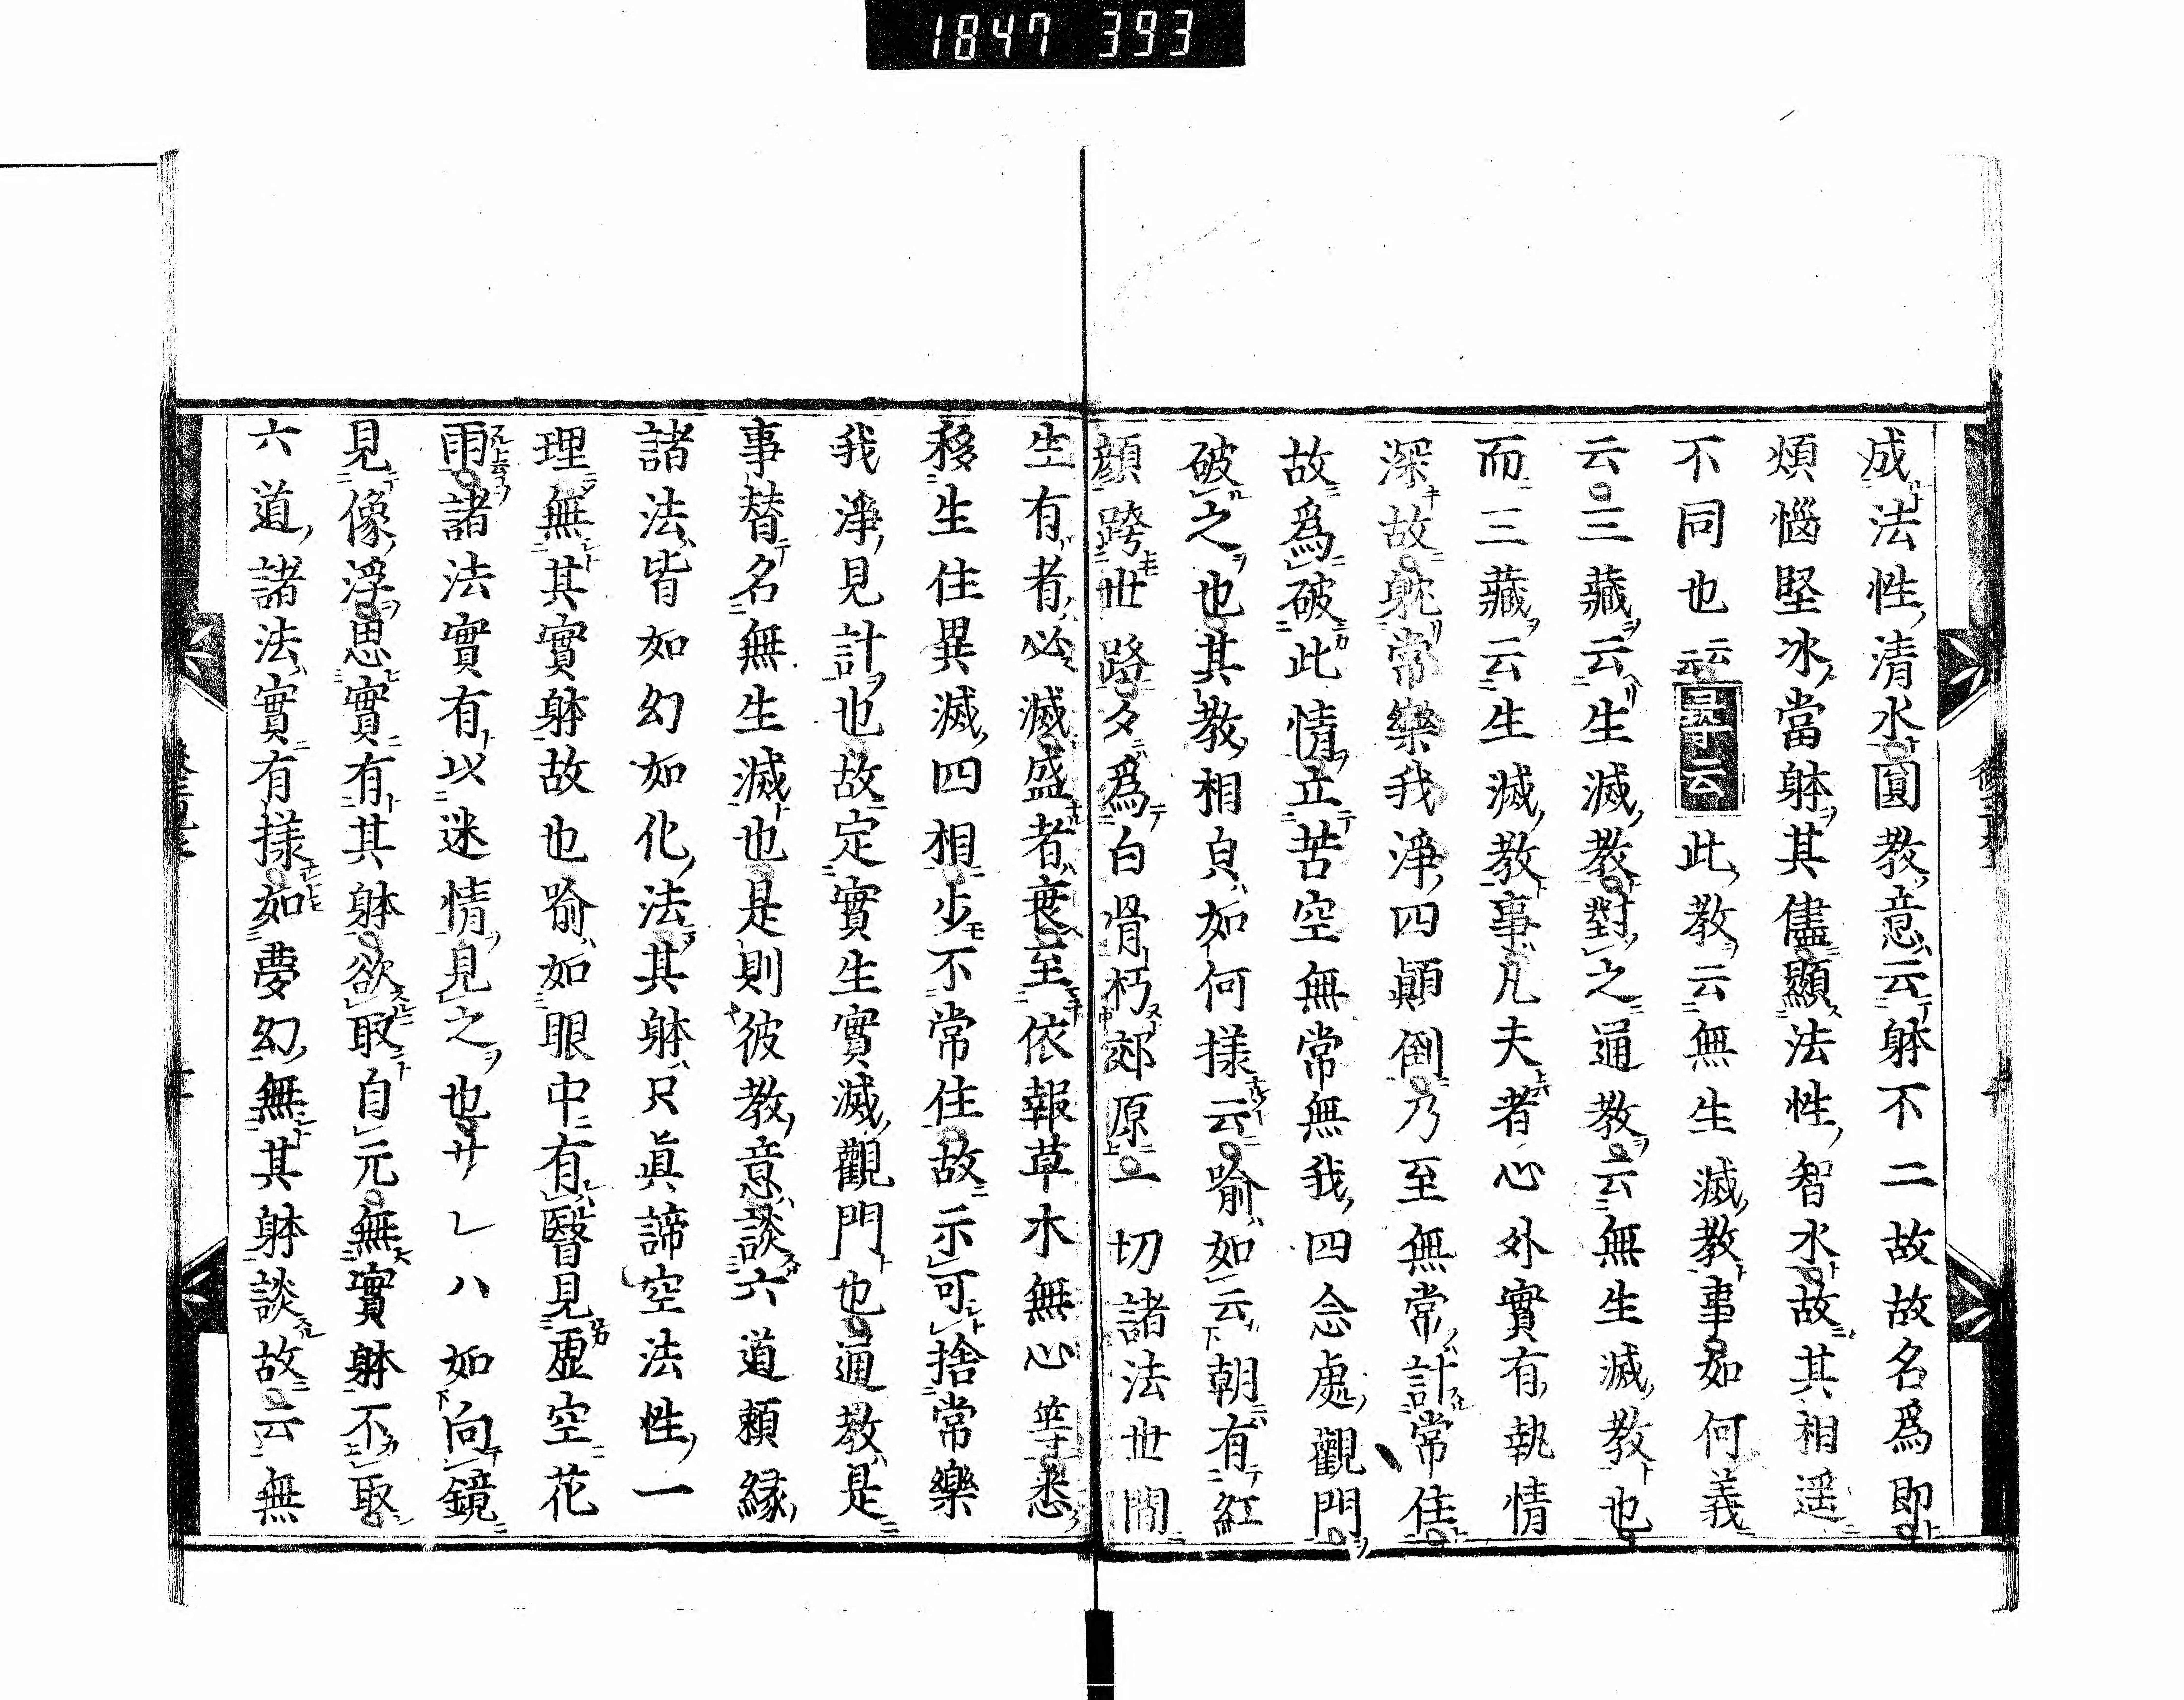 1847 393
成法性清水圓教意云躰不二故故名爲即
煩惱堅冰當躰其儘顯法性智水故其相遥
不同也云云尋云此教云無生滅教事如何義
云三藏云生滅教對之通教云無生滅教也
而三藏云生滅教事凡夫者心外實有執情
深故躭常樂我淨四顛倒乃至無常計常住
故爲破此情立苦空無常無我四念處觀門
破之也其教相貞如何樣云喻如云朝有紅
顔跨世路夕爲白骨朽郊原一切諸法世間
生有者必滅盛者衰至依報草木無心等悉
移生住異滅四相少不常住故示可捨常樂
我淨見計也故定實生實滅觀門也通教是
事替名無生滅也是則彼教意談六道頼縁
諸法皆如幻如化法其躰只眞諦空法性一
理無其實躰故也喻如眼中有瞖見虚空花
雨諸法實有以迷情見之也サレハ如向鏡
見像浮思實有其躰欲取自元無實躰不取
六道諸法實有樣如夢幻無其躰談故云無